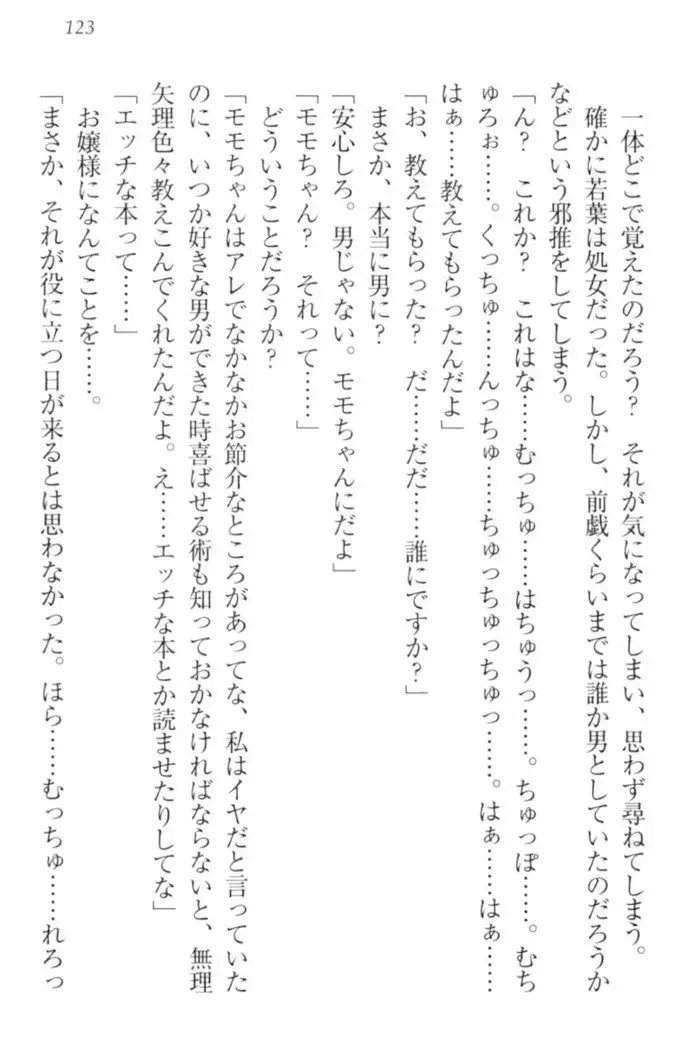 123
一体どこで覚えたのだろう？　それが気になってしまい、思わず尋ねてしまう。
確かに若葉は処女だった。しかし、前戯くらいまでは誰か男としていたのだろうか
などという邪推をしてしまう。
「ん？　これか？　これはな……むっちゅ……はちゅうっ……。ちゅっぽ……。むち
ゅろぉ……。くっちゅ……んっちゅ……ちゅっちゅっちゅっ……。はぁ……はぁ……
はぁ……教えてもらったんだよ」
「お、教えてもらった？　だ……だだ……誰にですか？」
まさか、本当に男に？
「安心しろ。男じゃない。モモちゃんにだよ」
「モモちゃん？　それって……」
どういうことだろうか？
「モモちゃんはアレでなかなかお節介なところがあってな、私はイヤだと言っていた
のに、いつか好きな男ができた時喜ばせる術も知っておかなければならないと、無理
矢理色々教えこんでくれたんだよ。え……エッチな本とか読ませたりしてな」
「エッチな本って……」
お嬢様になんてことを……。
「まさか、それが役に立つ日が来るとは思わなかった。ほら……むっちゅ……れろっ